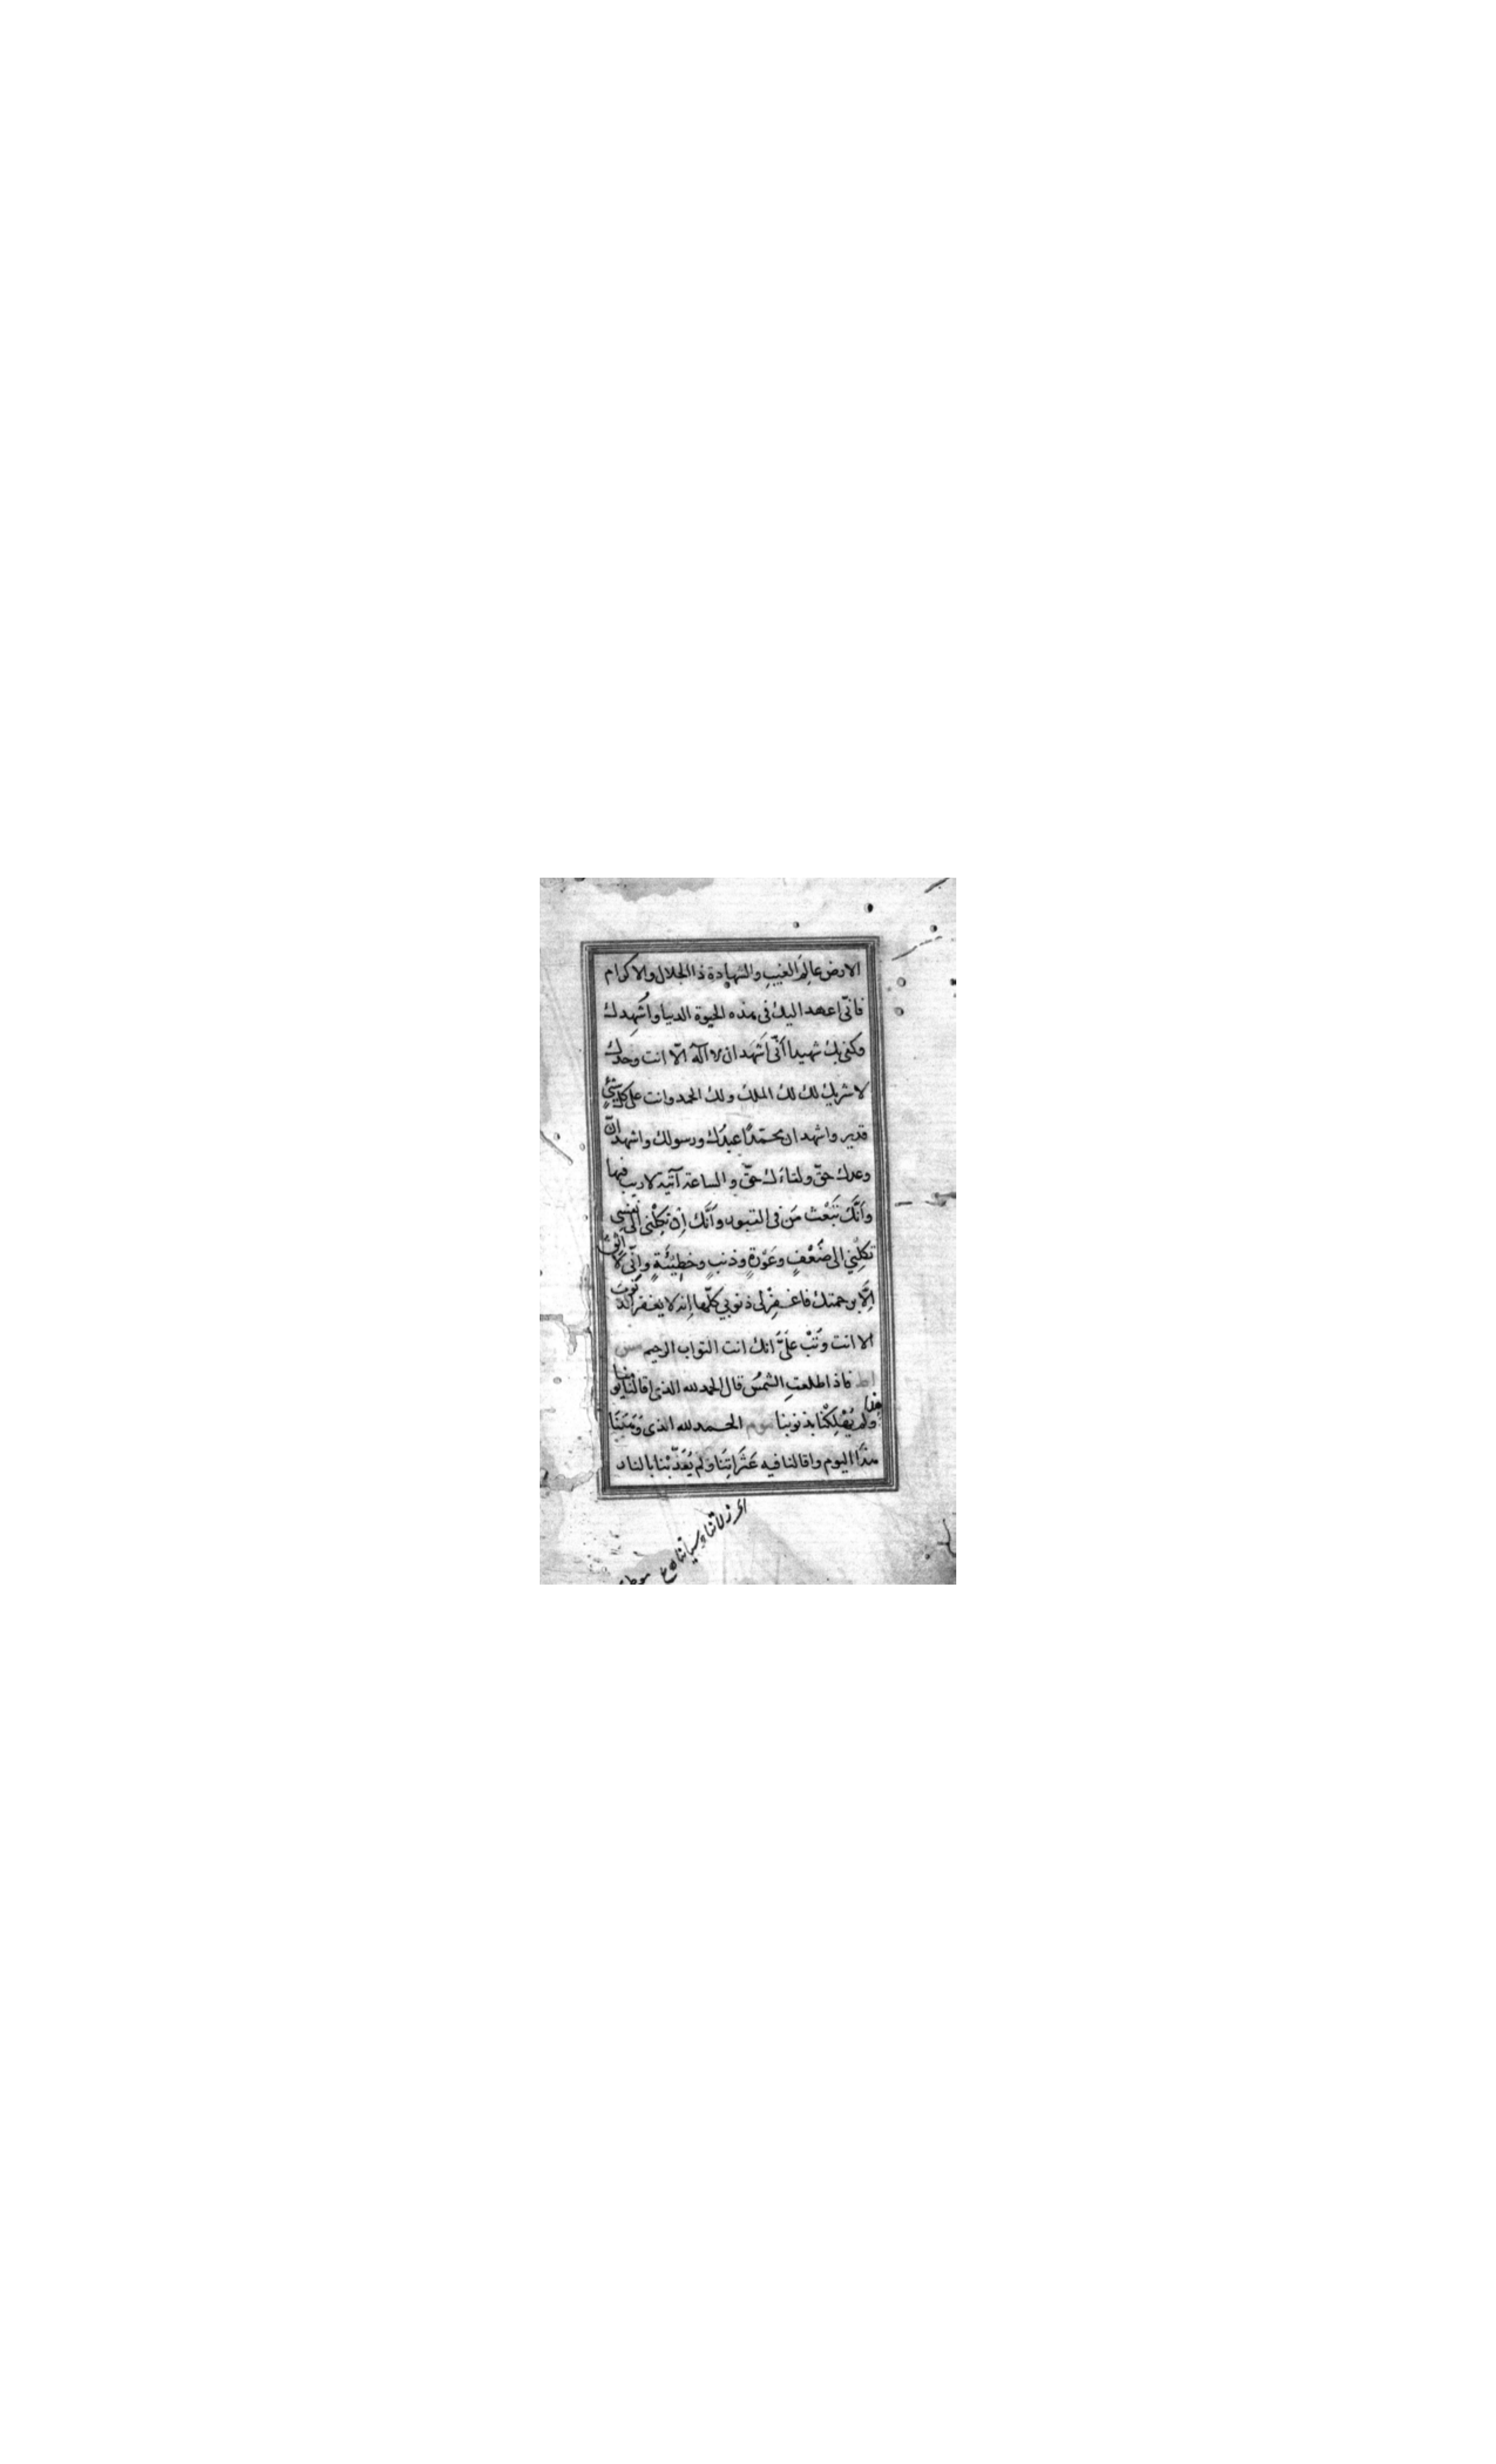 الارض عالِمَ الغيبِ والشهادة ذا الجلال والاكرام
فانّى اعهد اليك فى هذه الحيوة الدنيا واُشهِدك
وكفى بك شهيدا اَنّى اَشهَد ان لا اله الّا انت وحدك
لا شريك لك لك الملك ولك الحمد وانت على كل شئٍ
قدير واشهد ان محمّدًا عبدُك ورسولك واشهد انّ
وعدك حقّ ولقاءك حقّ والساعة آتية لا ريب فيها
واَنَّك تَبْعَث مَن فى القبور واَنَّك اِن تكِلْنى الى نفسى
تكلْنِي الى ضَعْفٍ وعَوْرةٍ وذنبٍ وخطِيْئَةٍ واِنّى لا اثق
اِلَّا برحمتك فاغفِرْلى ذنوبي كلّها اِنه لا يغفر الذنوب
الا انت وتُبْ عَلَىَّ انك انت التواب الرحيم مس
اط فاذا طلعتِ الشمسُ قال الحمد لله الذى اقالنا يومنا
هذا ولم يُهْلِكْنا بذنوبنا موم الحمد لله الذى وَهَبَنَا
هذا اليوم واقالنا فيه عَثَراتِنَا ولم يُعَذّبْنا بالنار
اى زلاتنا وسيآتنا